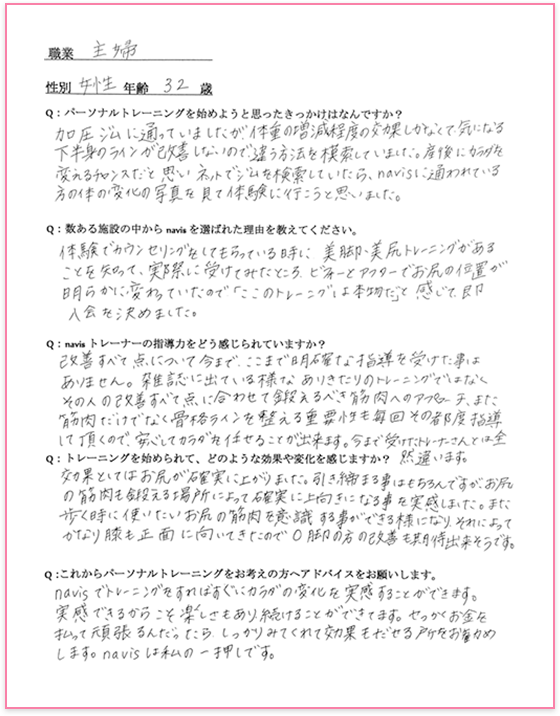 職業 主婦
性別 女性 年齢 32 歳
Q：パーソナルトレーニングを始めようと思ったきっかけはなんですか？
加圧ジムに通っていましたが、体重の増減程度の効果しかなくて、気になる
下半身のラインが改善しないので、違う方法を模索していました。産後にカラダを
変えるチャンスだと思い ネットでジムを検索していたら、navisに通われている
方の体の変化の写真を見て体験に行こうと思いました。
Q：数ある施設の中から navis を選ばれた理由を教えてください。
体験でカウンセリングをしてもらっている時に、美脚・美尻トレーニングがある
ことを知って、実際に受けてみたところ、ビフォーとアフターでお尻の位置が
明らかに変わっていたので「ここのトレーニングは本物だ」と 感じて、即
入会を決めました。
Q：navis トレーナーの指導力をどう感じられていますか？
改善すべて点について今まで、ここまで明確な指導を受けた事は
ありません。雑誌に出ている様な ありきたりのトレーニングではなく
その人の改善すべて点に合わせて鍛えるべき筋肉へのアプローチ、また
筋肉だけでなく骨格ラインを整える重要性も毎回その都度指導
して頂くので、安心してカラダを任せることが出来ます。今まで受けたトレーナーさんとは全
然違います。
Q：トレーニングを始められて、どのような効果や変化を感じますか？
効果としてはお尻が確実に上がりました。引き締まる事はもちろんですがお尻
の筋肉も鍛える場所によって確実に上向きになる事を実感しました。また
歩く時に使いたいお尻の筋肉を意識する事ができる様になり、それによって
かなり膝も正面に向いてきたので O脚の方の改善も期待出来そうです。
Q：これからパーソナルトレーニングをお考えの方へアドバイスをお願いします。
navisでトレーニングをすればすぐにカラダの変化を実感することができます。
実感できるからこそ楽しさもあり、続けることができてます。せっかくお金を
払って頑張るんだったら、しっかりみてくれて効果もだせる所をお勧め
します。navisは私の一押しです。